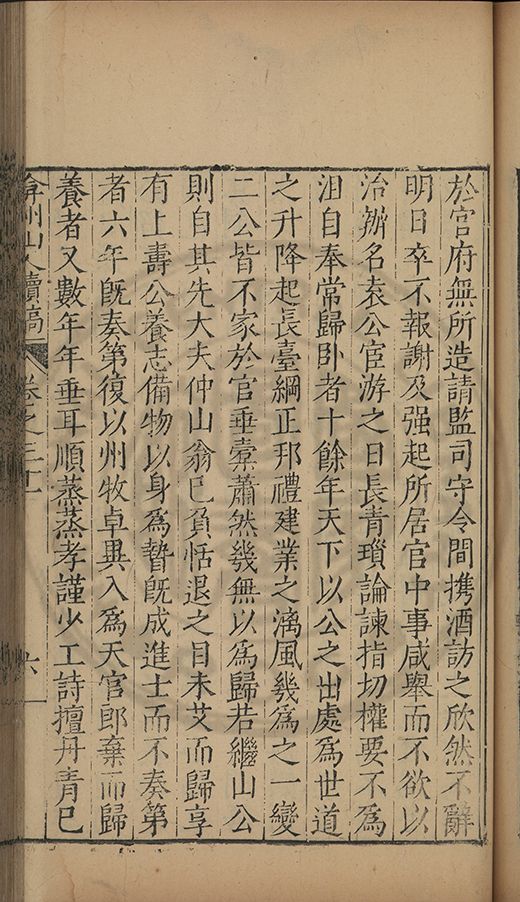 於官府無所造請監司守令間携酒訪之欣然不辭
明日卒不報謝及强起所居官中事咸舉而不欲以
治辦名袁公宦游之日長青瑣論諫指切權要不爲
沮自奉常歸卧者十餘年天下以公之出處爲世道
之升降起長臺綱正邦禮建業之漓風幾爲之一變
二公皆不家於官垂橐蕭然幾無以爲歸若繼山公
則自其先大夫仲山翁已負恬退之目未艾而歸享
有上壽公養志備物以身爲贄旣成進士而不奏第
者六年旣奏第復以州牧卓異入爲天官郎棄而歸
養者又數年年垂耳順蒸蒸孝謹少工詩擅丹青已
弇州山人續稿 卷之三十 六